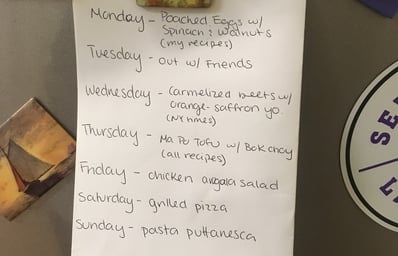 Monday - Poached Eggs w/
Spinach & Walnuts
(my recipes)
Tuesday - out w/ Friends
Wednesday - Carmelized beets w/
orange-saffron yo.
(NY times)
Thursday - Ma Po Tofu w/ Bok Choy
(all recipes)
Friday - chicken arugala salad
Saturday - grilled pizza
Sunday - pasta puttanesca
SE
L